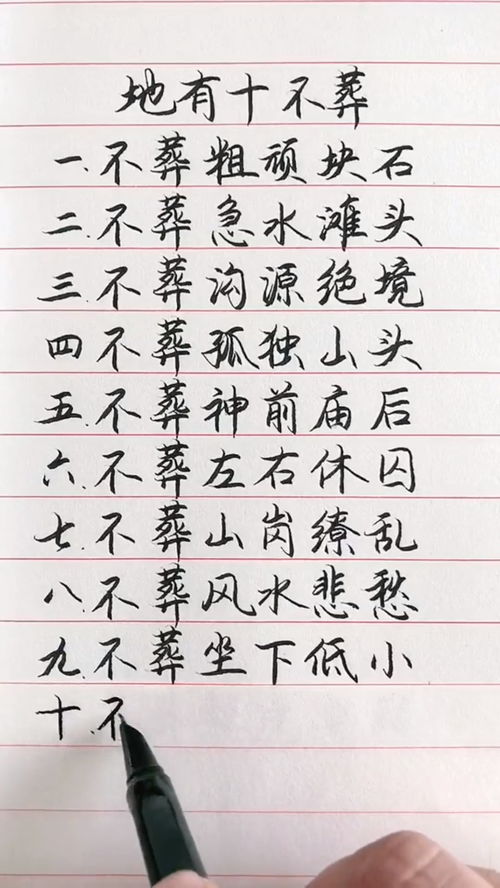 地有十不葬
一.不葬粗顽块石
二.不葬急水滩头
三.不葬沟源绝境
四.不葬孤独山头
五.不葬神前庙后
六.不葬左右休囚
七.不葬山岗缭乱
八.不葬风水悲愁
九.不葬坐下低小
十.不